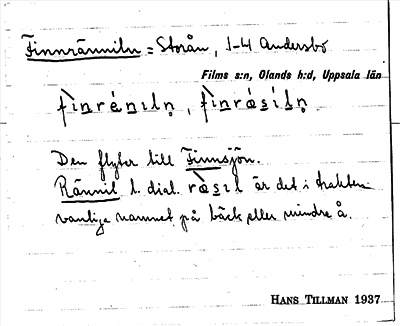 Finnränniln = Storån, 1-4 Andersbo
Films s:n, Olands h:d, Uppsala län
Den flyter till Finnsjön.
Rännil l. dial. är det i trakten
vanliga namnet på bäck eller mindre å.
HANS TILLMAN 1937